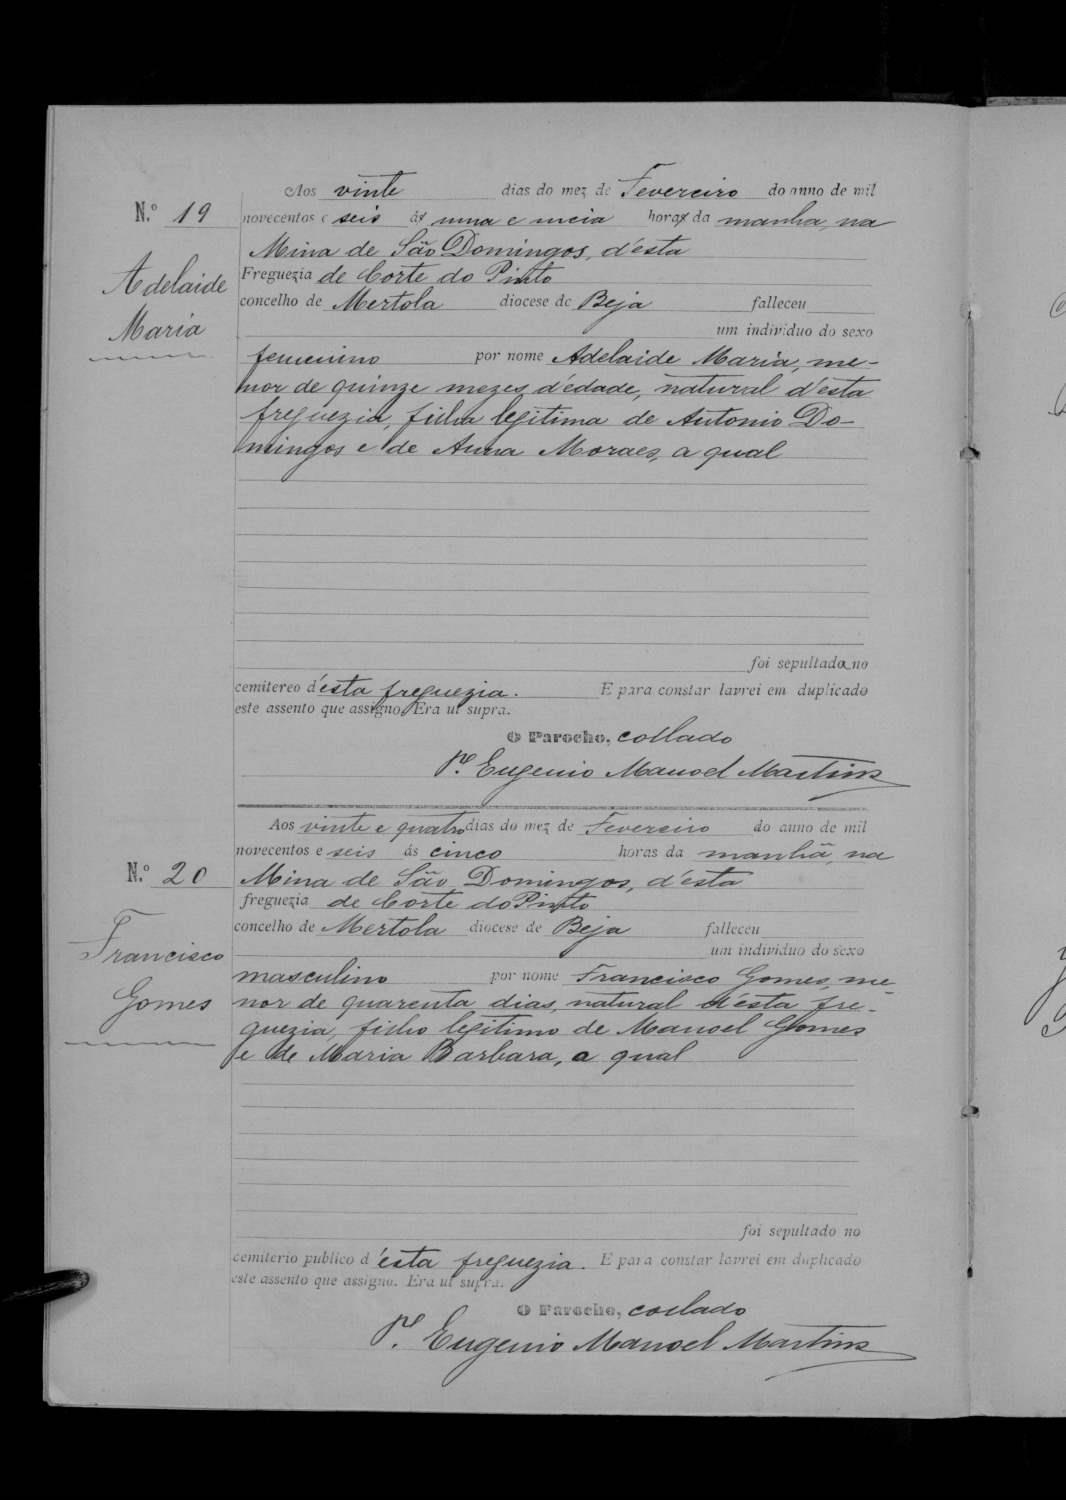 Aos vinte dias do mez de Fevereiro do anno de mil
N.º 19
novecentos e seis ás uma e meia horas da manha, na
Mina de São Domingos, d'esta
Adelaide
Maria
Freguezia de Corte do Pinto
concelho de Mertola diocese de Beja falleceu
um individuo do sexo
femenino por nome Adelaide Maria, me-
nor de quinze mezes d'edade, natural d'esta
freguezia, filha legitima de Antonio Do-
mingos e de Anna Moraes, a qual
foi sepultada no
cemitereo d'esta freguezia. E para constar lavrei em duplicado
este assento que assigno. Era ut supra.
O Parocho, collado
P.e Eugenio Manoel Martins
Aos vinte e quatro dias do mez de Fevereiro do anno de mil
novecentos e seis ás cinco horas da manhã, na
N.º 20
Mina de São Domingos, d'esta
freguezia de Corte do Pinto
Francisco
Gomes
concelho de Mertola diocese de Beja falleceu
um individuo do sexo
masculino por nome Francisco Gomes, me-
nor de quarenta dias, natural d'esta fre-
guezia, filho legitimo de Manoel Gomes
e de Maria Barbara, o qual
foi sepultado no
cemiterio publico d'esta freguezia. E para constar lavrei em duplicado
este assento que assigno. Era ut supra.
O Parocho, collado
P.e Eugenio Manoel Martins